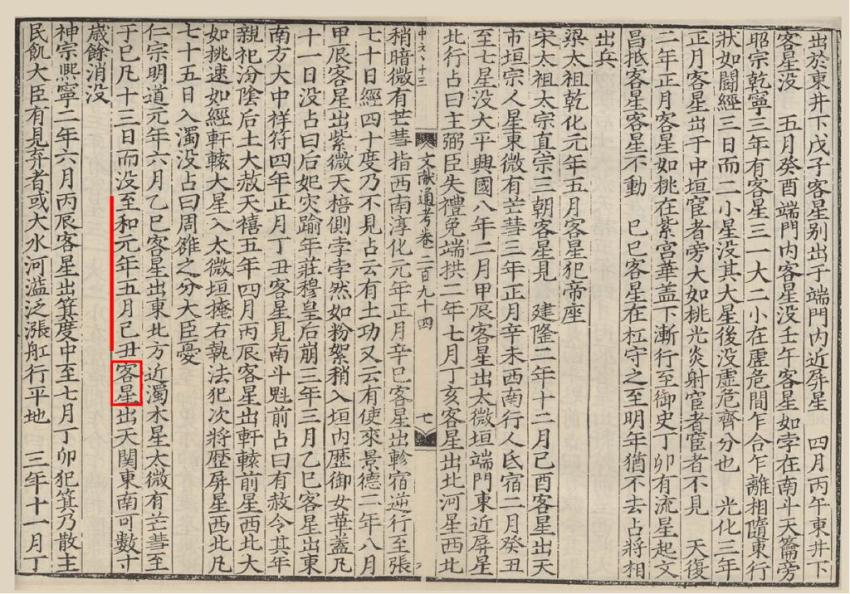 出於東井下戊子客星别出于端門內近屏星　四月丙午東井下
客星没　五月癸酉端門內客星没壬午客星如孛在南斗天籥旁
昭宗乾寧三年有客星三一大二小在虛危間乍合乍離相隨東行
狀如鬬經三日而二小星没其大星後没虛危齊分也　光化三年
正月客星出于中垣宦者旁大如桃光炎射宦者宦者不見　天復
二年正月客星如桃在紫宮華蓋下漸行至御史丁卯有流星起文
昌抵客星客星不動　己巳客星在杠守之至明年猶不去占將相
出兵
梁太祖乾化元年五月客星犯帝座
宋太祖太宗真宗三朝客星見　建隆二年十二月己酉客星出天
市垣宗人星東微有芒彗三年正月辛未西南行入氐宿二月癸丑
至七星没大平興國八年二月甲辰客星出太微垣端門東近屏星
北行占曰主弼臣失禮免端拱二年七月丁亥客星出北河星西北
文獻通考卷二百九十四
七
稍暗微有芒彗指西南淳化元年正月辛巳客星出軫宿逆行至張
七十日經四十度乃不見占云有土功又云有使來景德二年八月
甲辰客星出紫微天棓側孛孛然如粉絮稍入垣內歷御女華蓋凡
十一日没占曰后妃灾踰年莊穆皇后崩三年三月乙巳客星出東
南方大中祥符四年正月丁丑客星見南斗魁前占曰有赦令其年
親祀汾陰后土大赦天禧五年四月丙辰客星出軒轅前星西北大
如桃速如經軒轅大星入太微垣掩右執法犯次將歷屏星西北凡
七十五日入濁没占曰周雒之分大臣憂
仁宗明道元年六月乙巳客星出東北方近濁木星太微有芒彗至
丁巳凡十三日而没至和元年五月己丑客星出天關東南可數寸
歲餘消没
神宗熙寧二年六月丙辰客星出箕度中至七月丁卯犯箕乃散主
民飢大臣有見弃者或大水河溢泛漲舡行平地　三年十一月丁